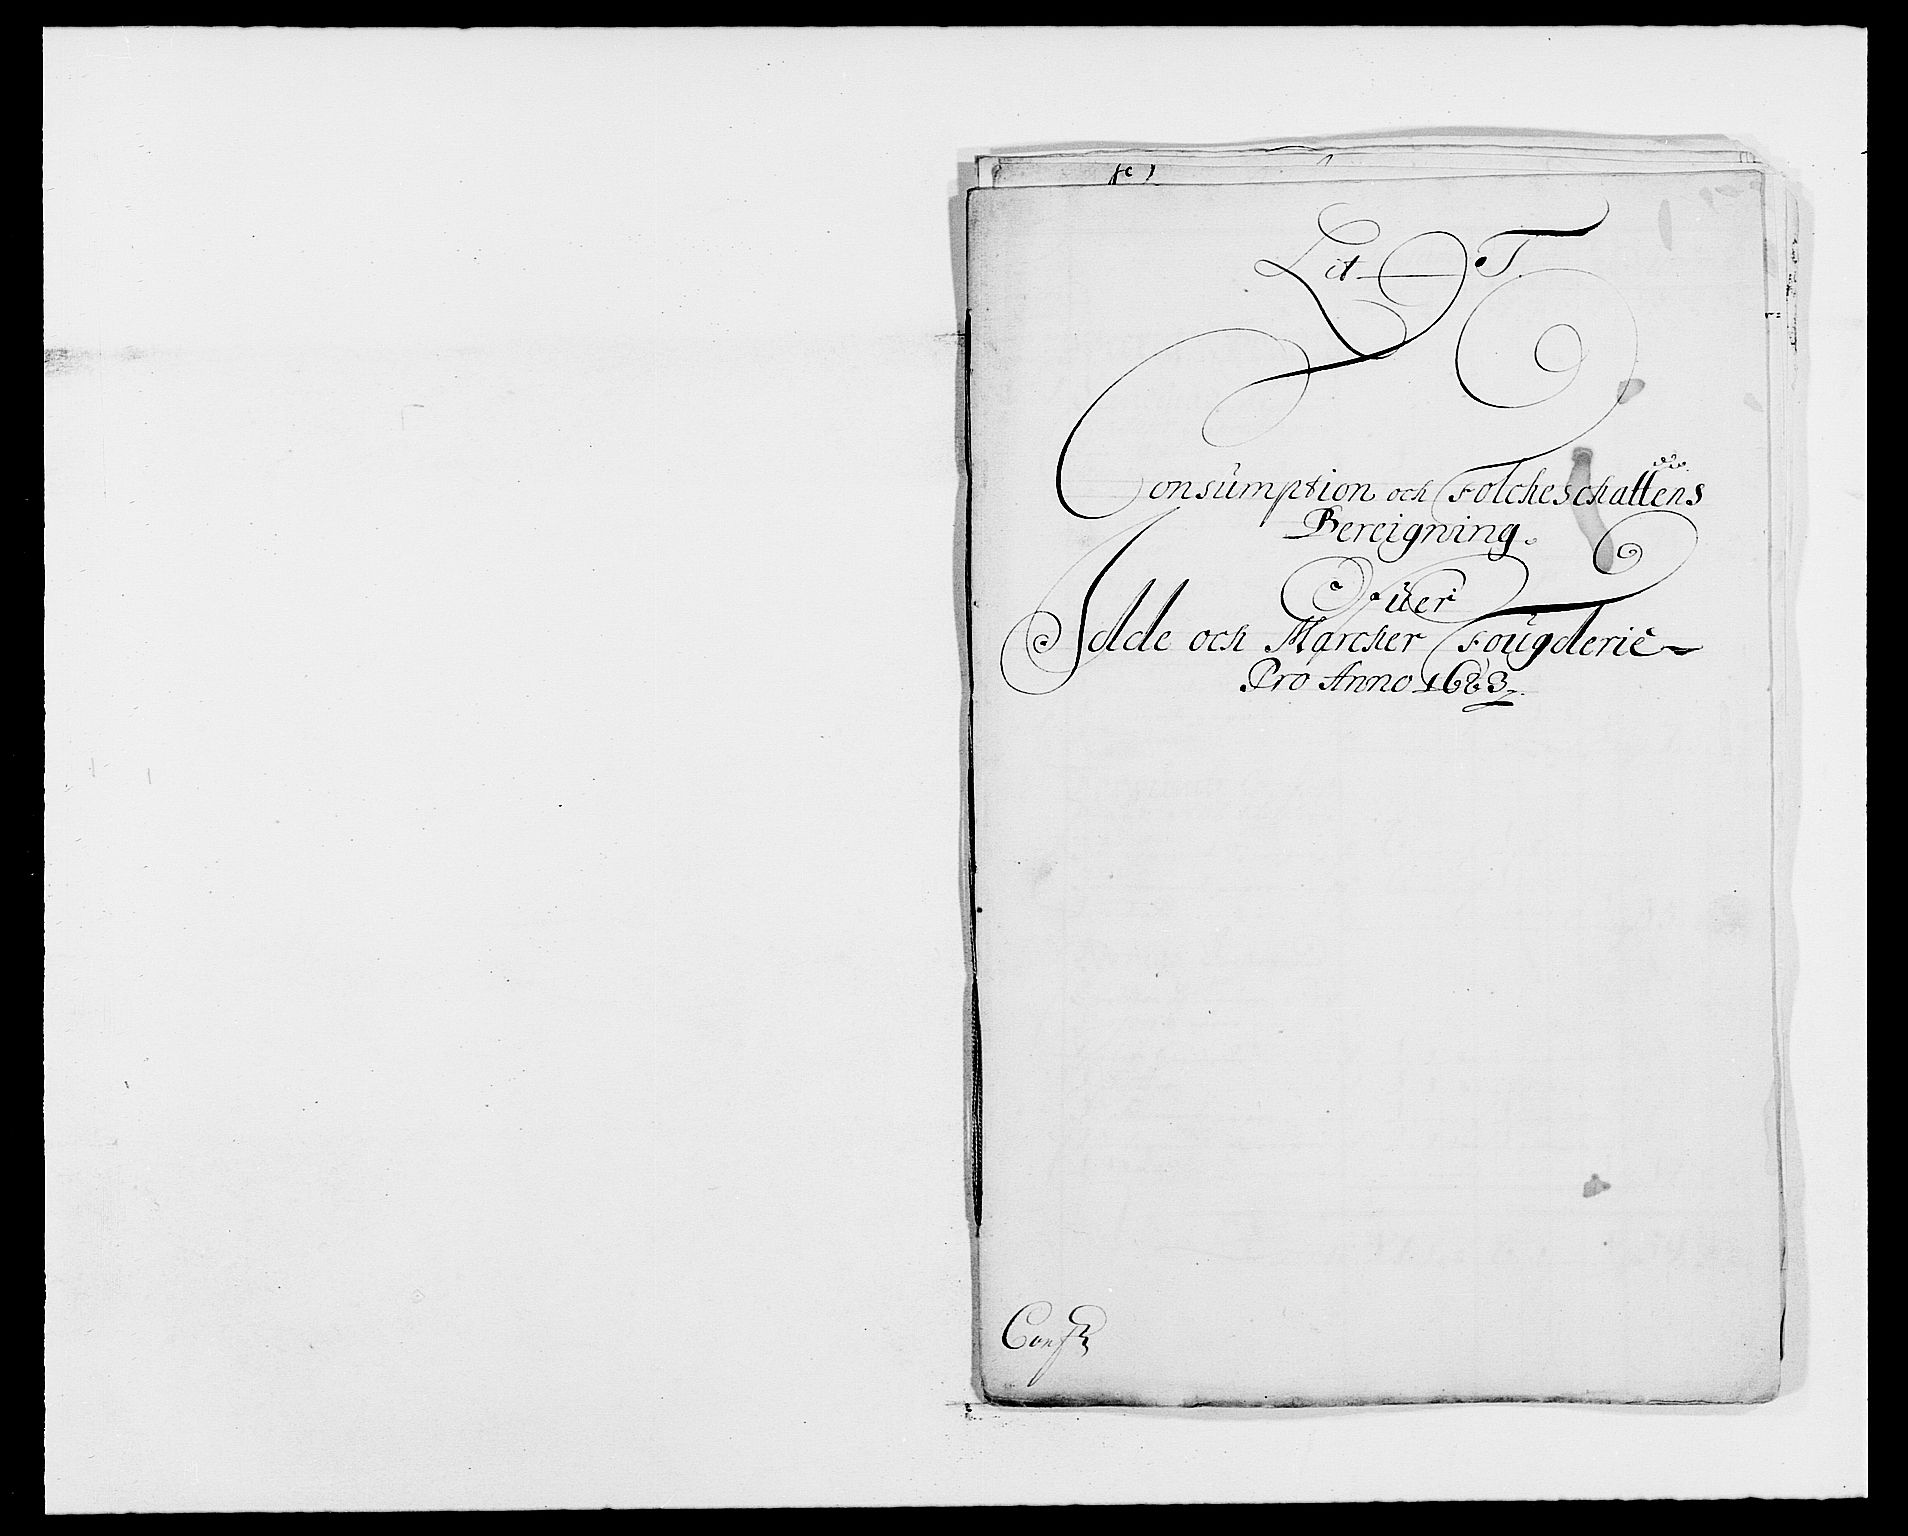 Lit. T.
Consumption och Folcheschattens
Bereigning.
Ofüer
Idde och Marcker Fougderie
Pro Anno 1683